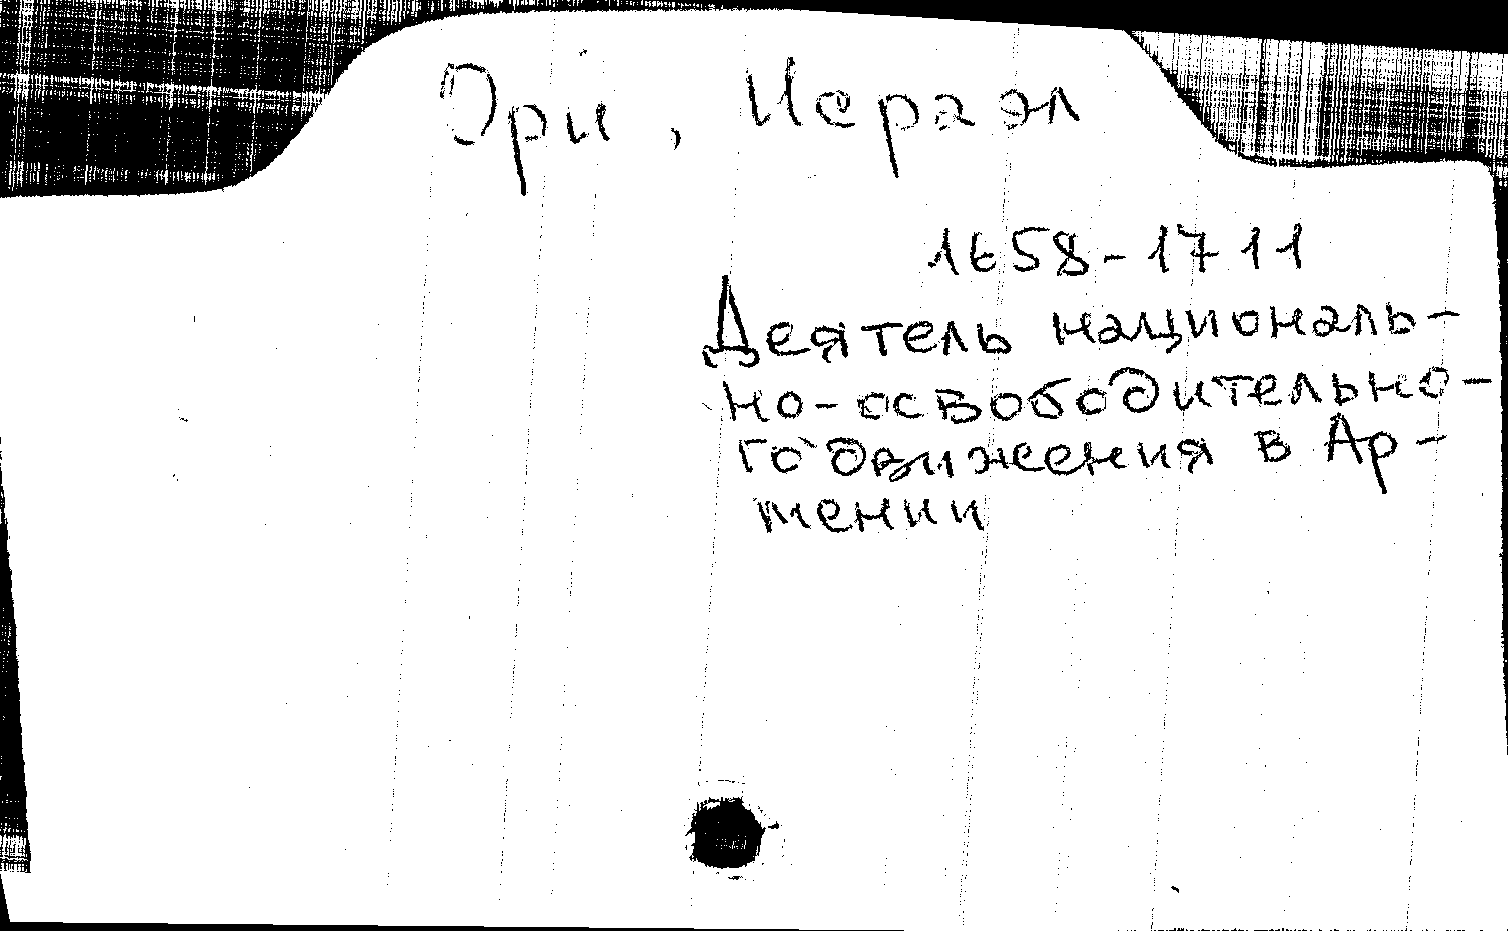 Ори, Исраэл
1658-1711
Деятель националь-
но-освободительно-
го движения в Ар-
мении